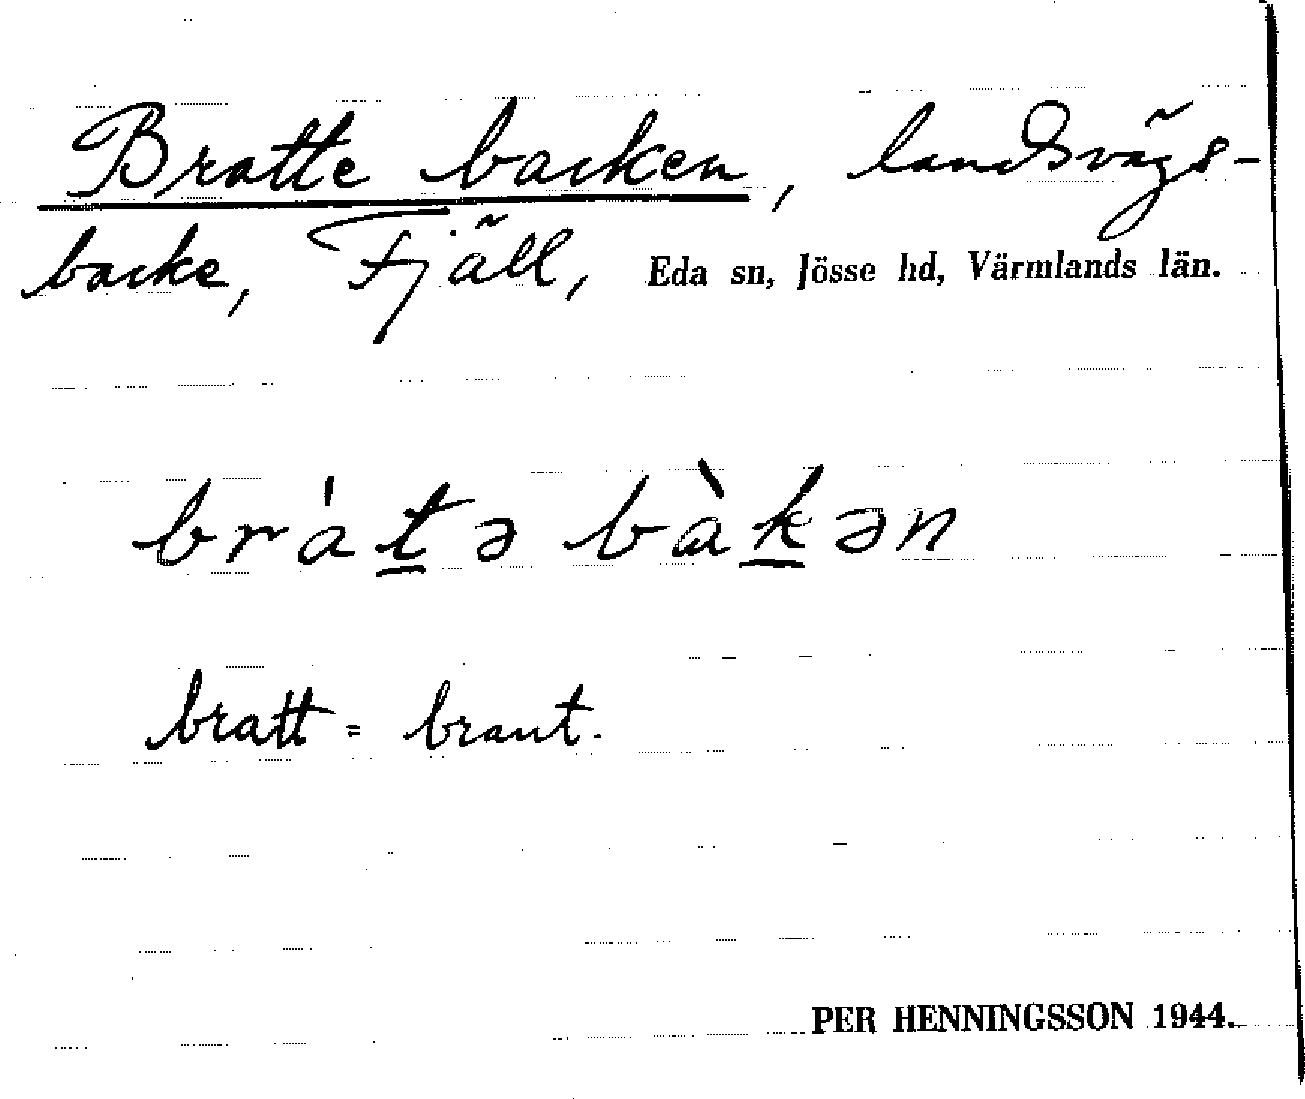 Bratte backen, landsvägs-
backe, Fjäll, Eda sn, Jösse hd, Värmlands län.
bràt̲ə bàk̲ən
bratt = brant.
PER HENNINGSSON 1944.